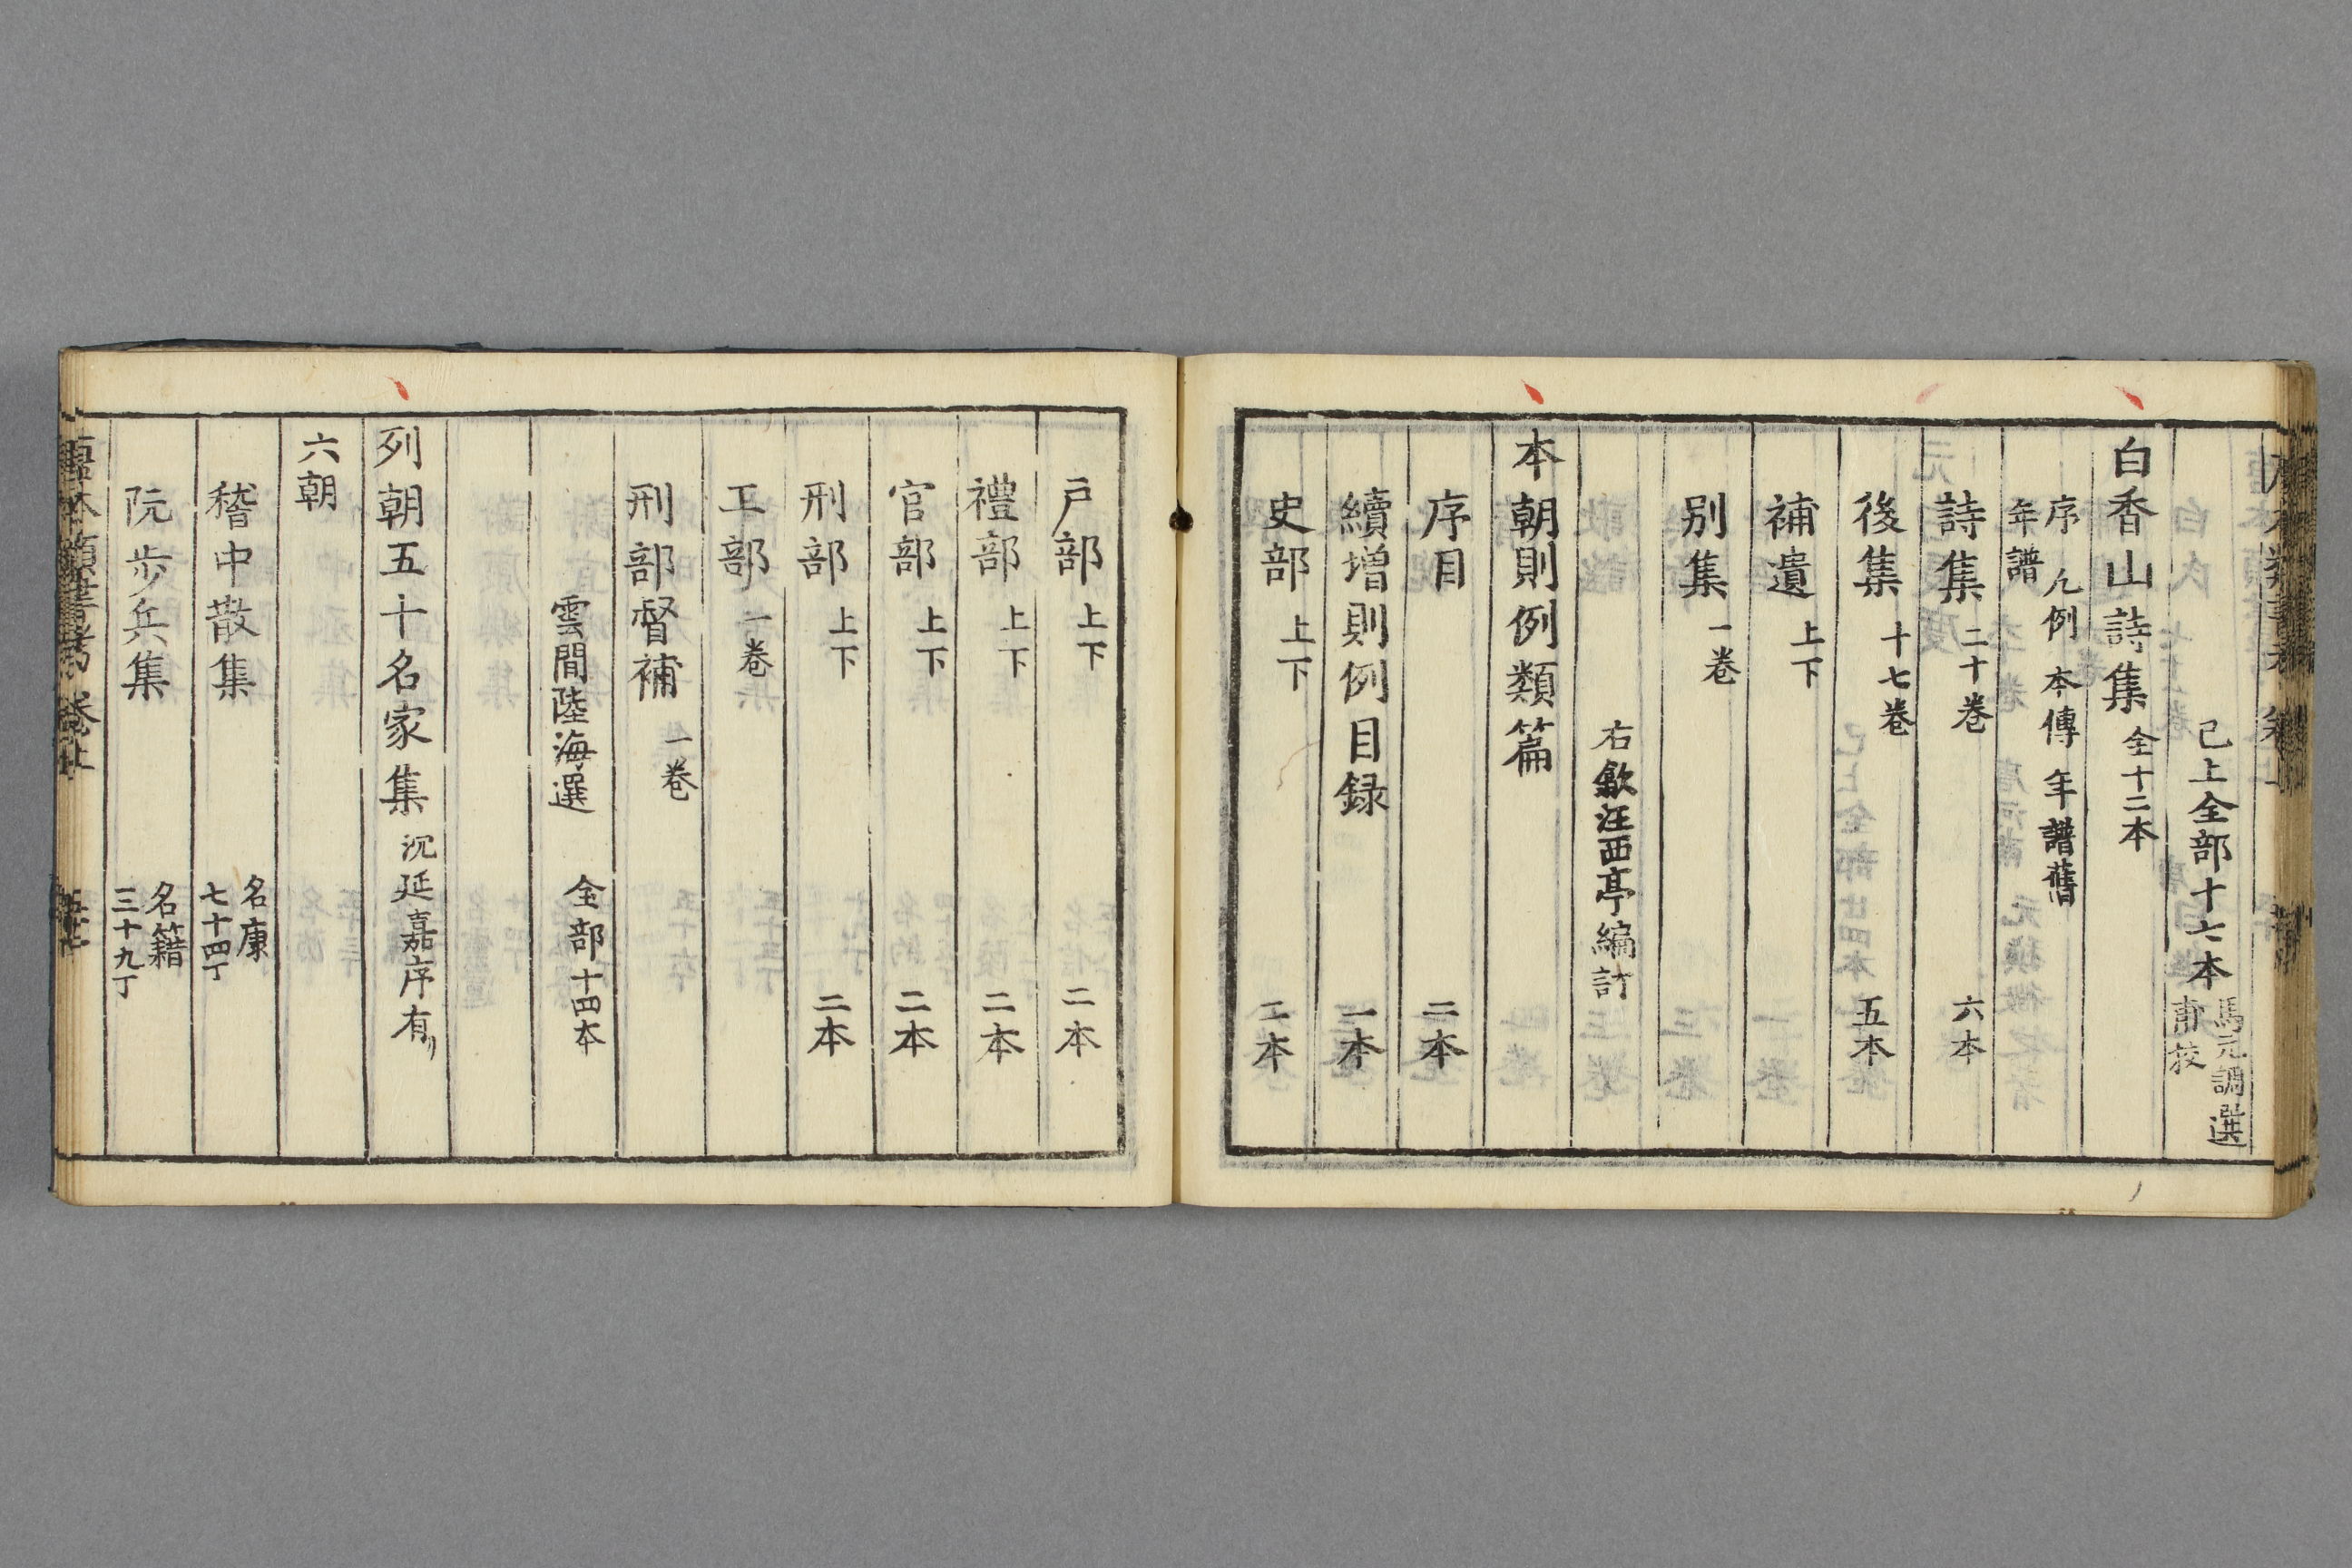 己上全部十六本 馬元調選甫校
白香山詩集 全十二本
序 凡例 本傳 年譜舊
年譜
詩集 二十卷 六本
後集 十七卷 五本
補遺 上下
别集 一卷
右歙汪西亭編訂
本朝則例類篇
序目 二本
續增則例目録 一本
史部 上下 二本
戸部 上下 二本
禮部 上下 二本
官部 上下 二本
刑部 上下 二本
工部 一卷
刑部督補 一卷
雲間陸海選 全部十四本
列朝五十名家集 沉延嘉序有リ
六朝
嵆中散集 名康 七十四丁
阮步兵集 名籍 三十九丁